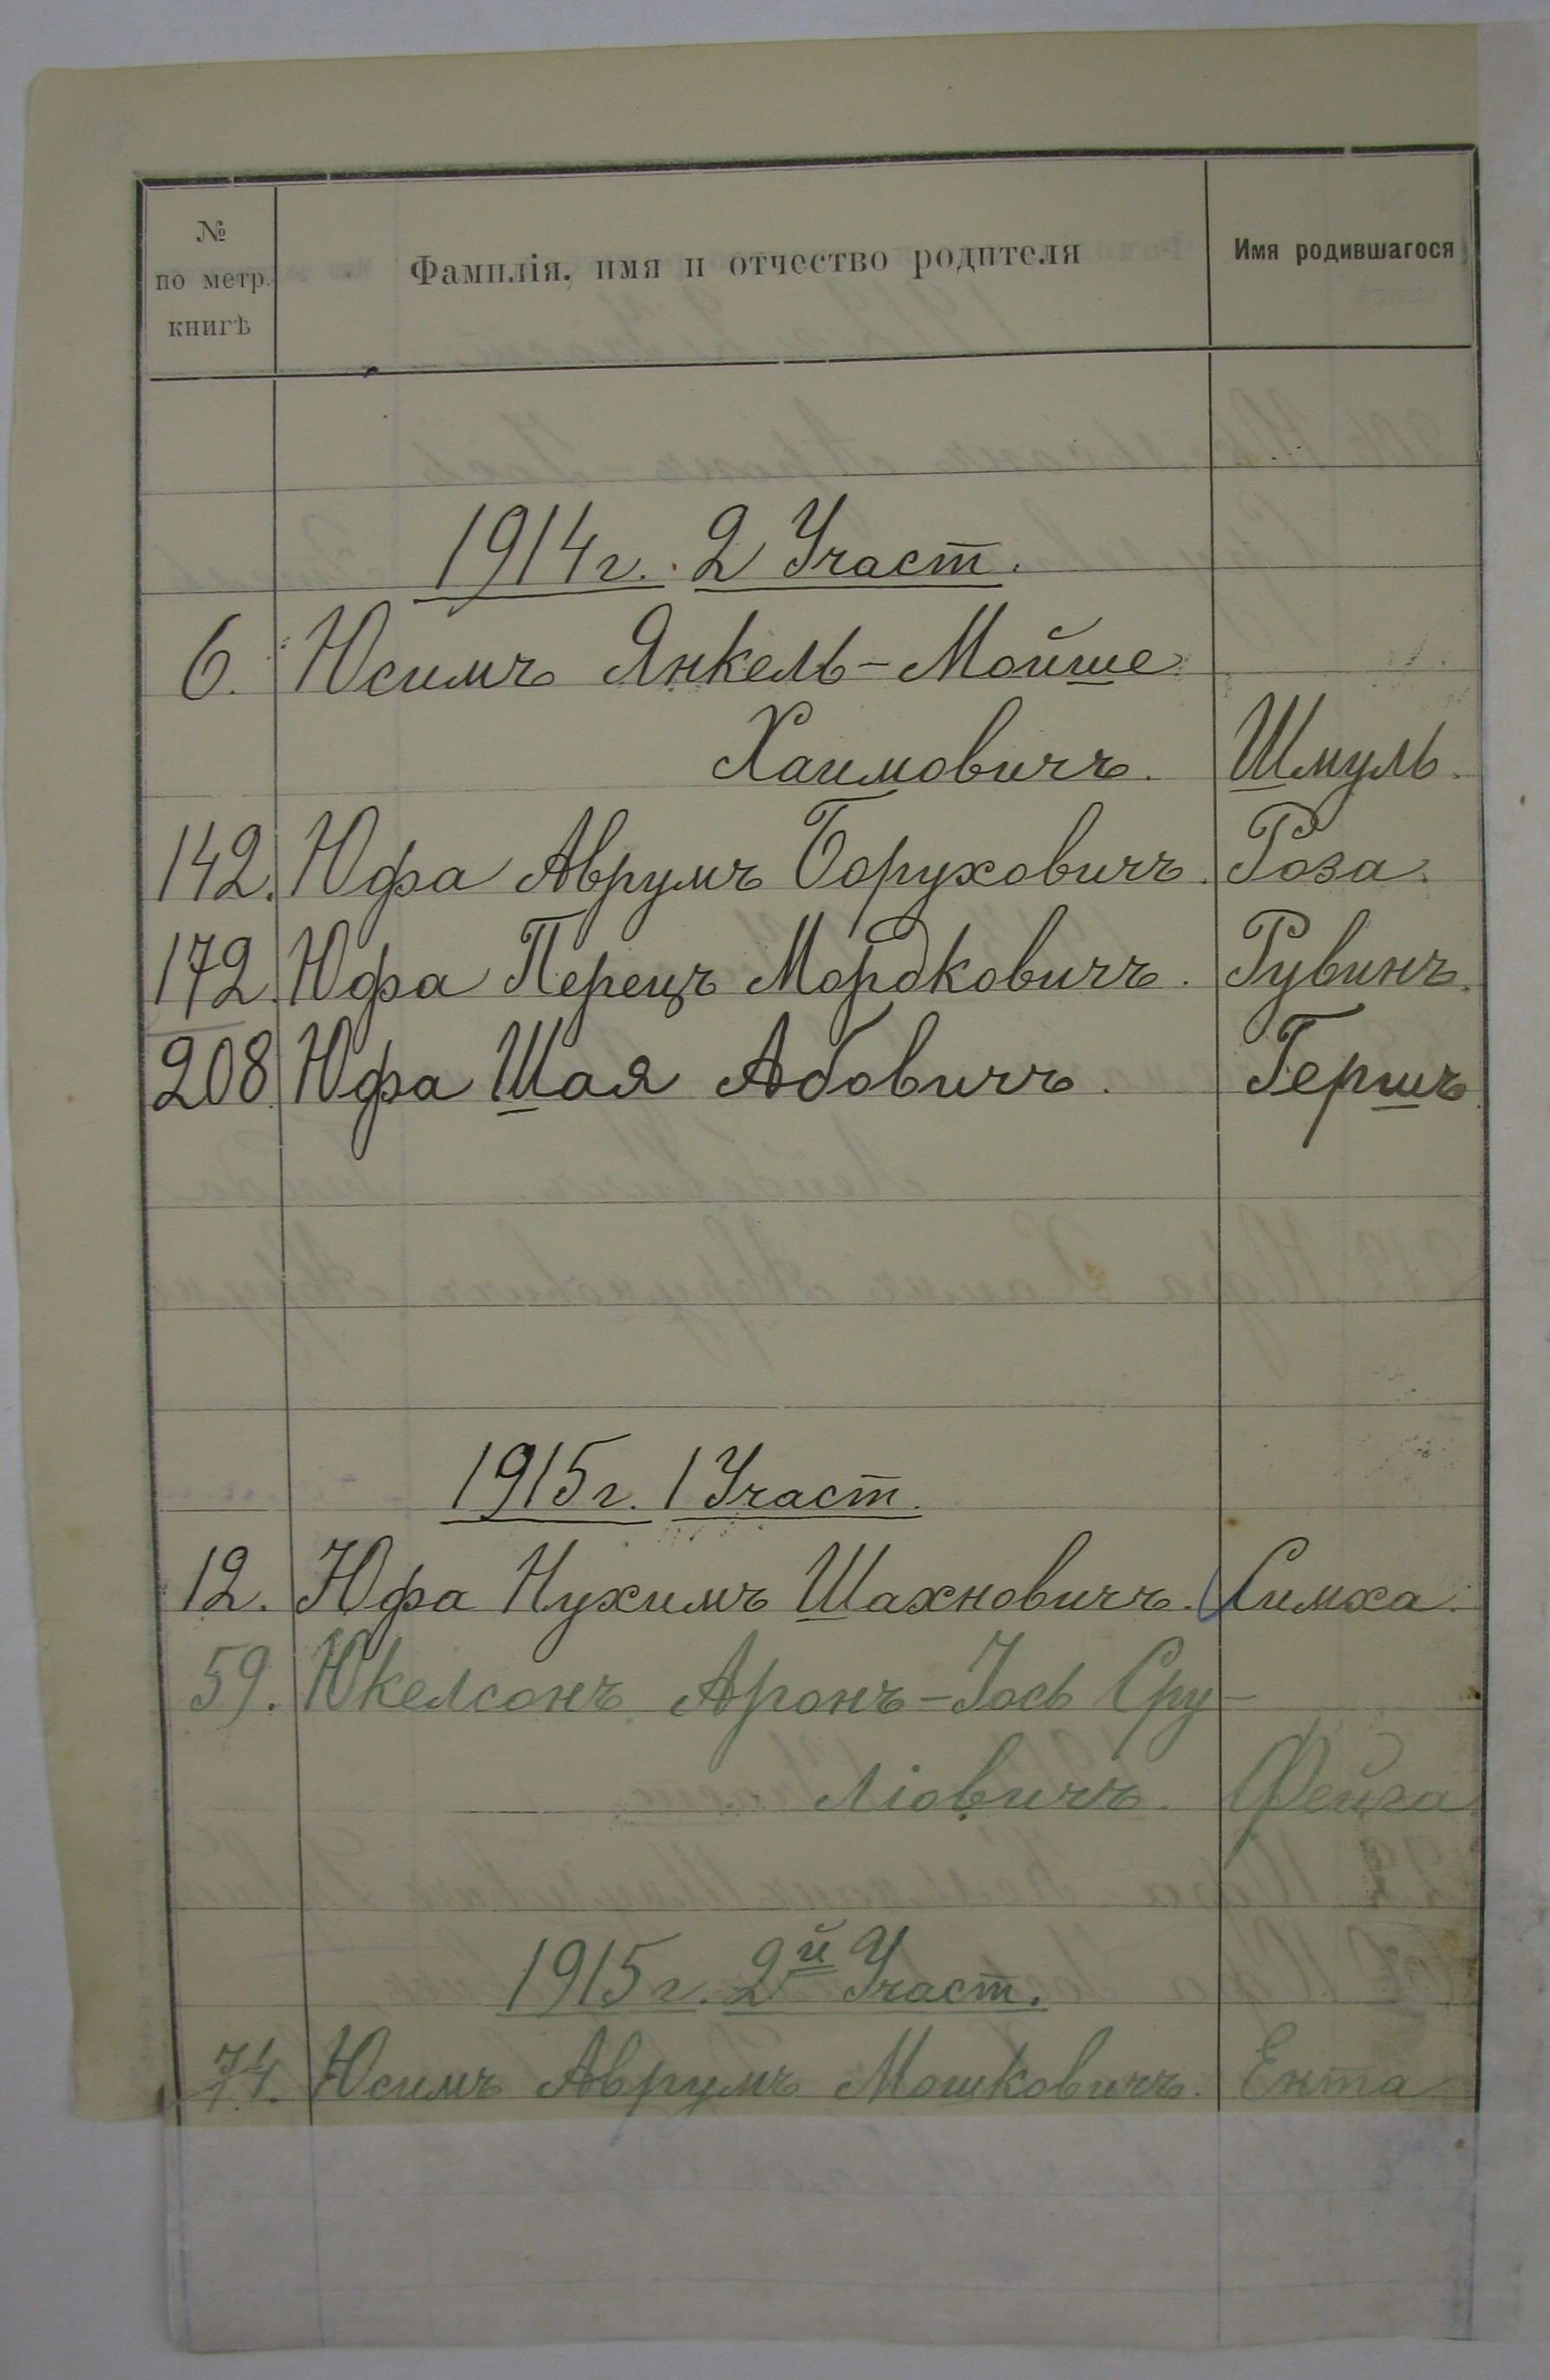 №
по метр.
книгѣ
Фамилія, имя и отчество родителя
Имя родившагося
1914 г. 2 Участ.
6. Юсимъ Янкель-Мойше
Хаимовичъ. Шмуль.
142. Юфа Аврумъ Боруховичъ. Роза.
172. Юфа Перецъ Мордковичъ. Рувинъ.
208. Юфа Шая Абовичъ. Гершъ
1915 г. 1 Участ.
12. Юфа Нухимъ Шахновичъ. Симха.
59. Юкелсонъ Аронъ-Іось Сру-
ліовичъ. Фейга
1915 г. 2й Участ.
74. Юсимъ Аврумъ Мошковичъ. Ента